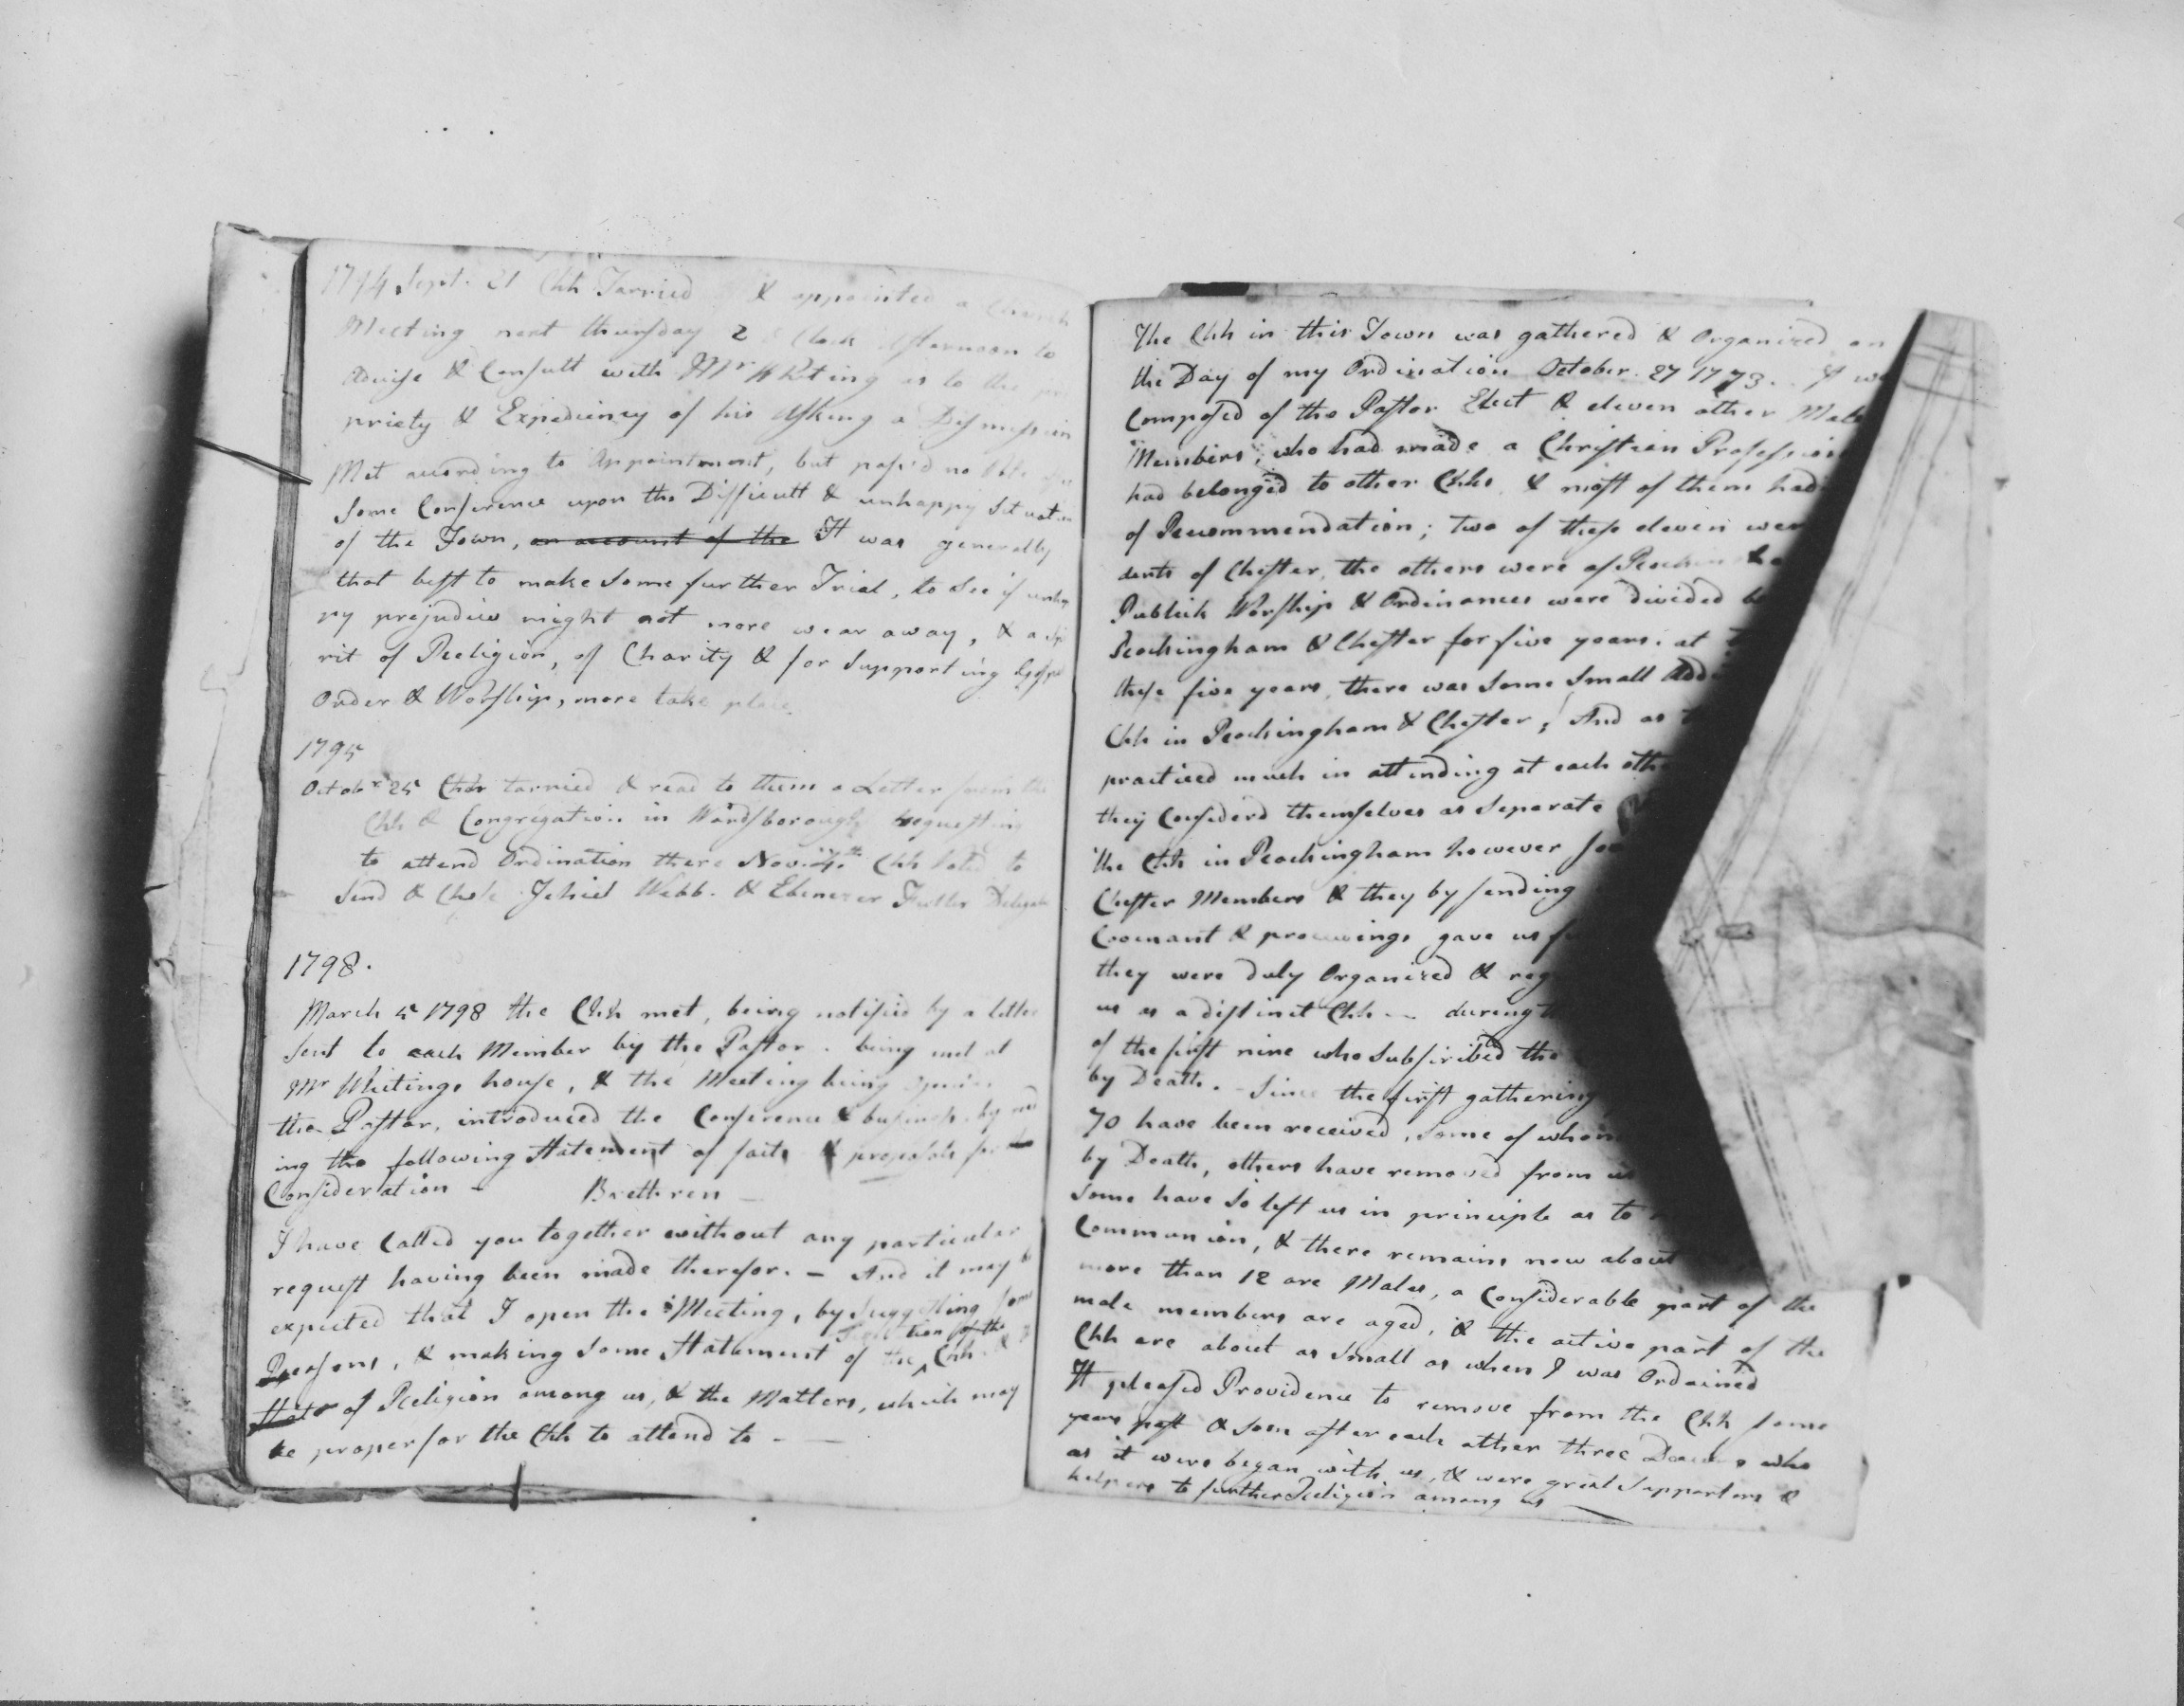 1794 Sept. 21 Chh Tarried & appointed a Church
Meeting next thursday 2 Clock Afternoon to
advise & Consult with Mr Whiting as to the pro
priety & Expediency of his Asking a Dismission
Met according to Appointment, but pass'd no Vote
Some Conference upon the Difficult & unhappy Situation
of the Town, on account of the It was generally
that best to make some further Trial, to see if unhap
py prejudice might not more wear away, & a Spi
rit of Religion, of Charity & for Supporting Gospel
Order & Worship, more take place
1795
Octobr 25 Chh tarried & read to them a Letter from the
Chh & Congregation in Wardsborough requesting
to attend Ordination there Nov. 4th Chh Voted to
Send & Chose Jehiel Webb. & Ebenezer Fuller Delegates
1798.
March 5 1798 the Chh met, being notified by a letter
sent to each Member by the Pastor. being met at
Mr Whitings house, & the Meeting being opened
the Pastor, introduced the Conference & business by read
ing the following Statement of facts & proposals for
Consideration - Brethren -
I have Called you together without any particular
request having been made therefor. - And it may be
expected that I open the Meeting, by Suggesting some
Reasons, & making some Statement of the Chh &
tion of the
State of Religion among us, & the Matters, which may
be proper for the Chh to attend to - -
The Chh in this Town was gathered & Organized on
the Day of my Ordination October. 27 1773. It wa
Composed of the Pastor Elect & eleven other Male
Members; who had made a Christian Profession
had belonged to other Chhs & most of them had
of Recommendation; two of these eleven wer
dents of Chester, the others were of Rockin
Publick Worship & Ordinances were divided be
Rockingham & Chester for five years. at
these five years, there was some Small Addi
Chh in Rockingham & Chester; And as t
practiced much in attending at each othe
they Considerd themselves as Separate
the Chh in Rockingham however
Chester Members & they by sending
Covenant & proceedings gave us
they were duly Organized & reg
us as a distinct Chh - during t
of the first nine who Subscribed the
by Death. - Since the first gathering
70 have been received, Some of whom
by Death, others have removed from us
Some have so left us in principle as to
Communion, & there remains now about
more than 12 are Males, a Considerable part of the
male members are aged, & the active part of the
Chh are about as Small as when I was Ordained
It pleased Providence to remove from the Chh some
years past & soon after each other three Deacons who
as it were began with us, & were great Supporters &
helpers to further Religion among us